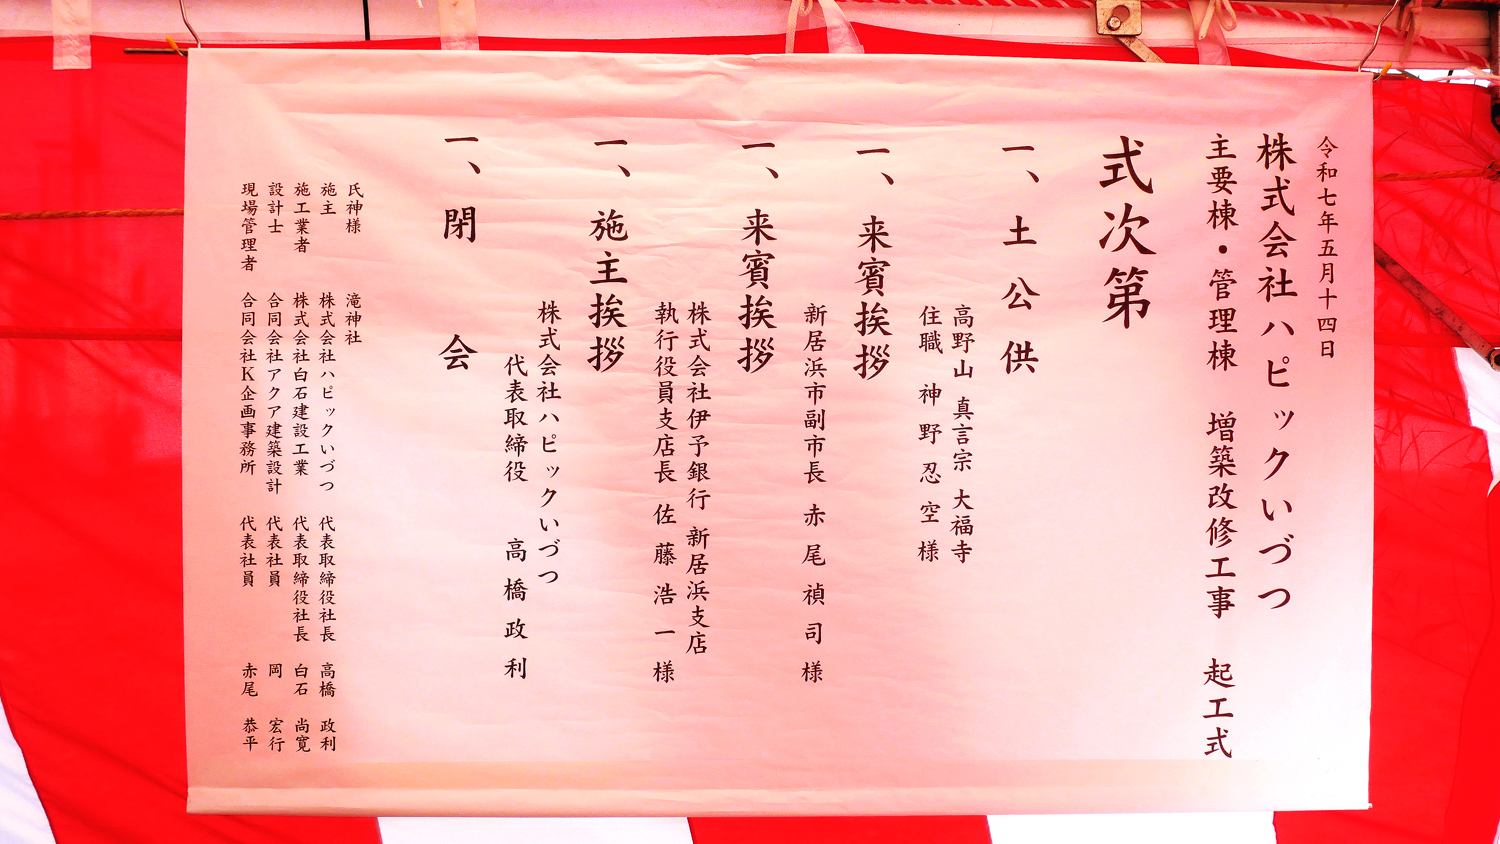 令和七年五月十四日
株式会社ハピックいづつ
主要棟・管理棟 増築改修工事 起工式
式次第
一、土公供
高野山 真言宗 大福寺
住職 神野忍空様
一、来賓挨拶
新居浜市副市長 赤尾禎司様
一、来賓挨拶
株式会社伊予銀行 新居浜支店
執行役員支店長 佐藤浩一様
一、施主挨拶
株式会社ハピックいづつ
代表取締役 高橋政利
一、閉会
氏神様 滝神社
施主 株式会社ハピックいづつ 代表取締役社長 高橋 政利
施工業者 株式会社白石建設工業 代表取締役社長 白石 尚寛
設計士 合同会社アクア建築設計 代表社員 岡 宏行
現場管理者 合同会社K企画事務所 代表社員 赤尾 恭平